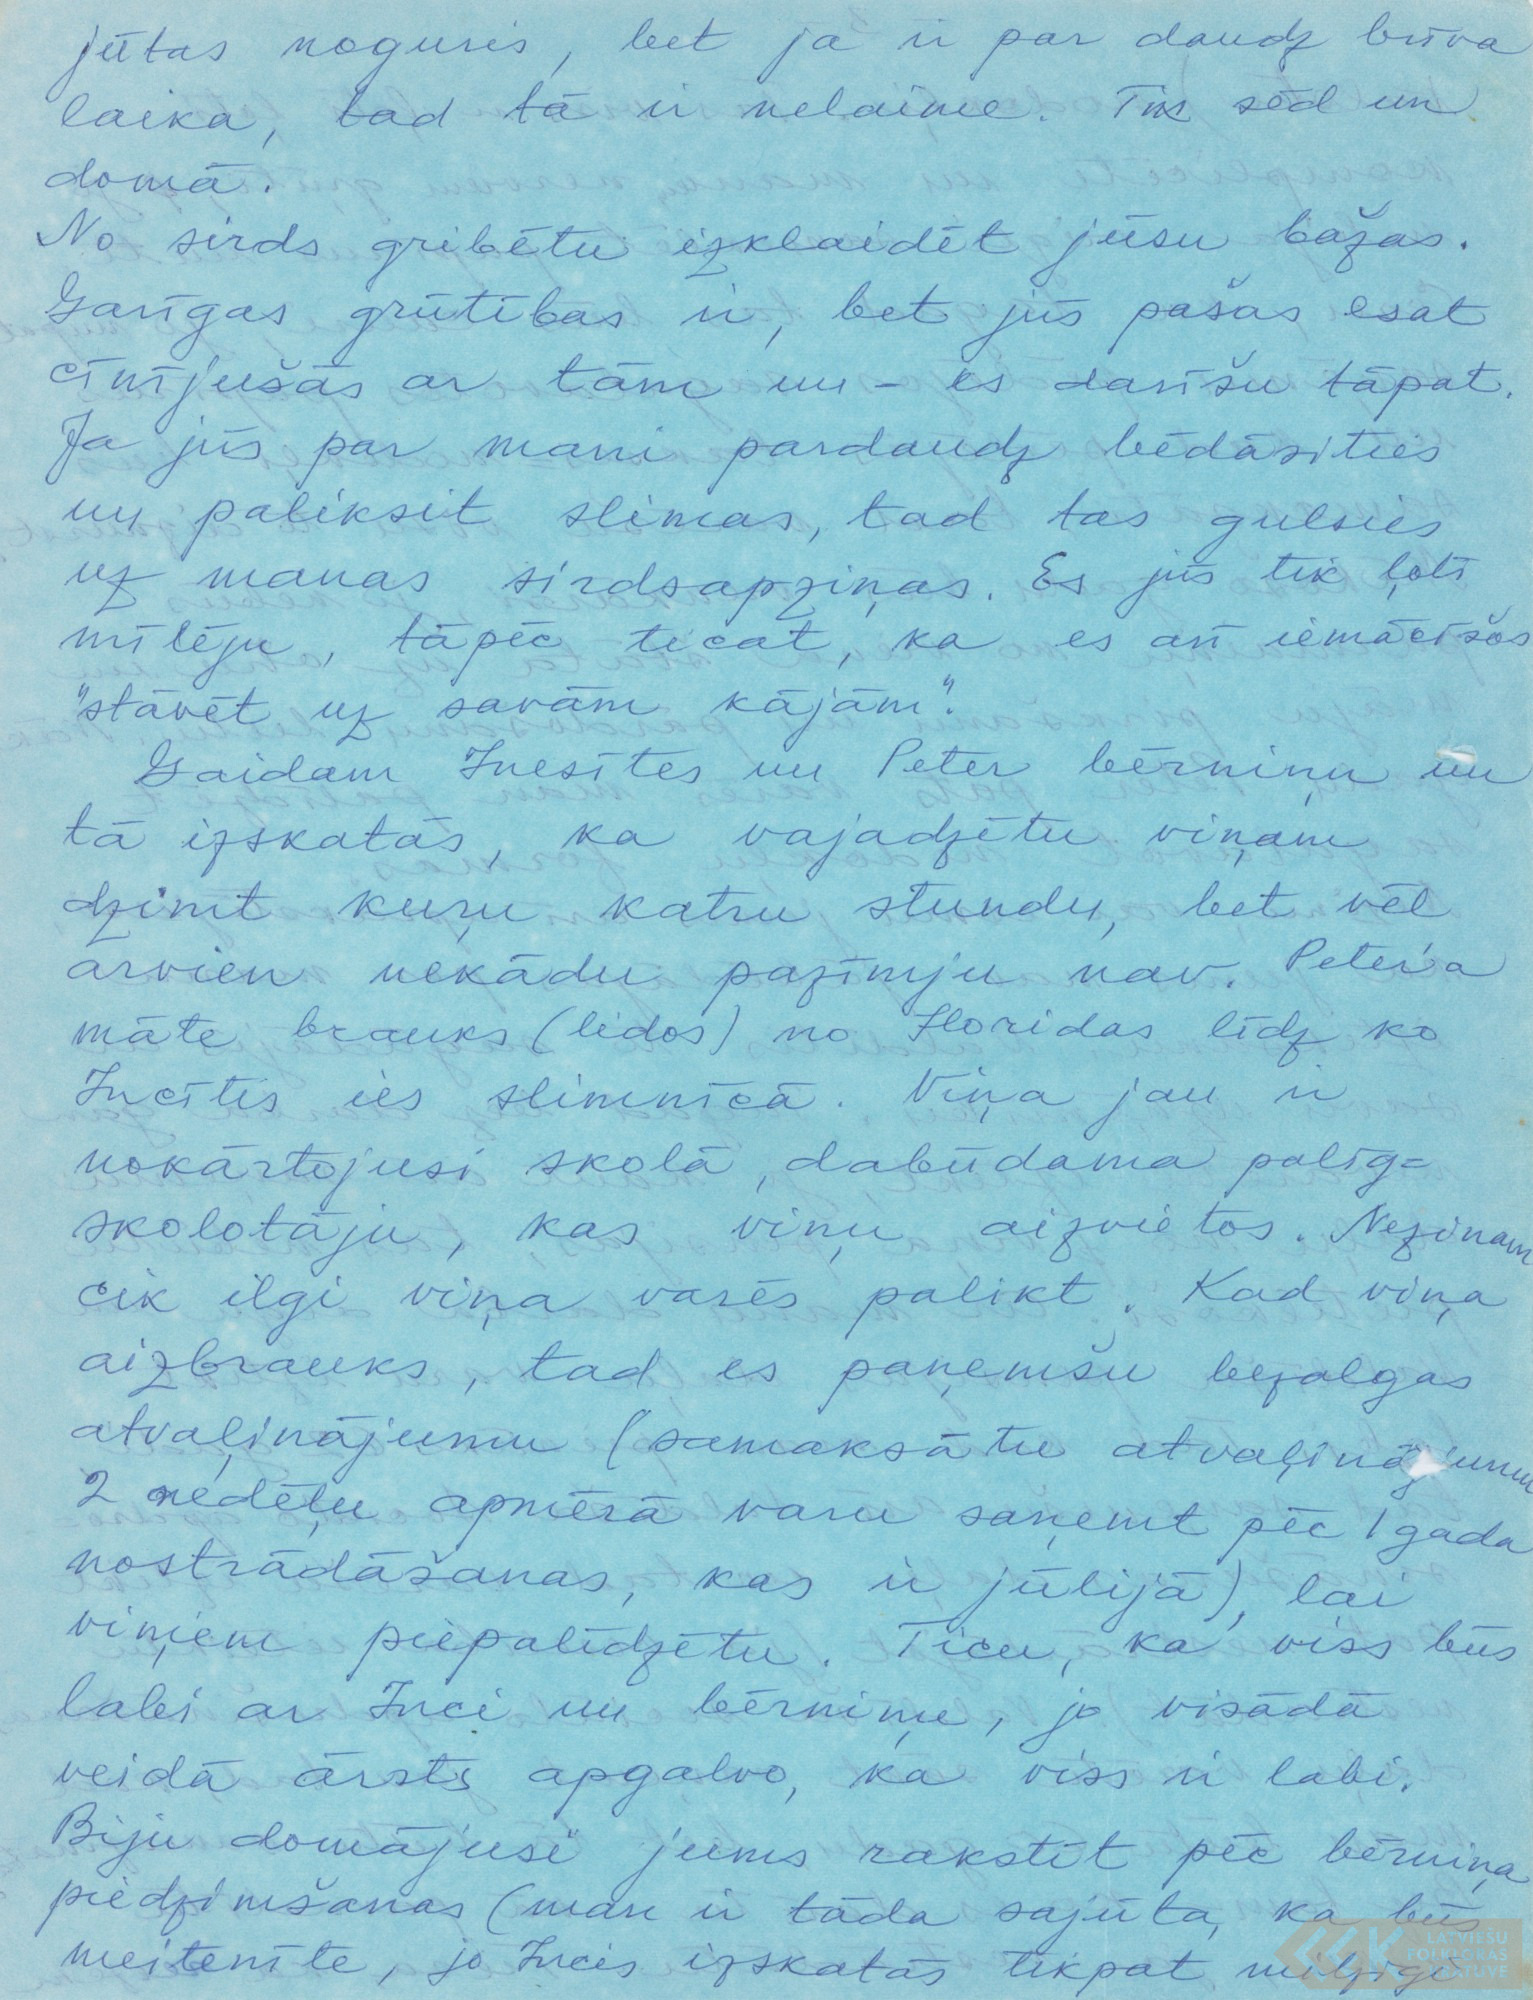 jūtas noguris, bet ja ir par daudz brīva
laika, tad tā ir nelaime. Tik sēd un
domā.
No sirds gribētu izklaidēt jūsu bažas.
Garīgas grūtības ir, bet jūs pašas esat
cīnījušās ar tām un – es darīšu tāpat.
Ja jūs par mani pardaudz bēdāsities
un paliksit slimas, tad tas gulsies
uz manas sirdsapziņas. Es jūs tik ļoti
mīlēju, tāpēc ticat, ka es arī iemācīšos
"stāvēt uz savām kājām".
Gaidam Inesītes un Peter bērniņu un
tā izskatās, ka vajadzētu viņam
dzimt kuŗu katru stundu, bet vēl
arvien nekādu pazīmju nav. Peter'a
māte brauks (lidos) no Floridas līdz ko
Incītis ies slimnīcā. Viņa jau ir
nokārtojusi skolā, dabūdama palīg=
skolotāju, kas viņu aizvietos. Nezinam
cik ilgi viņa varēs palikt. Kad viņa
aizbrauks, tad es paņemšu bezalgas
atvaļinājumu (samaksātu atvaļinājumu
2 nedēļu apmērā varu saņemt pēc 1 gada
nostrādāšanas, kas ir jūlijā), lai
viņiem piepalīdzētu. Ticu, ka viss būs
labi ar Inci un bērniņu, jo visādā
veidā ārsts apgalvo, ka viss ir labi.
Biju domājusi jums rakstīt pēc bērniņa
piedzimšanas (man ir tāda sajūta, ka būs
meitenīte, jo Incis izskatās tikpat milzīgi
LATVIEŠU
FOLKLORAS
KRĀTUVE